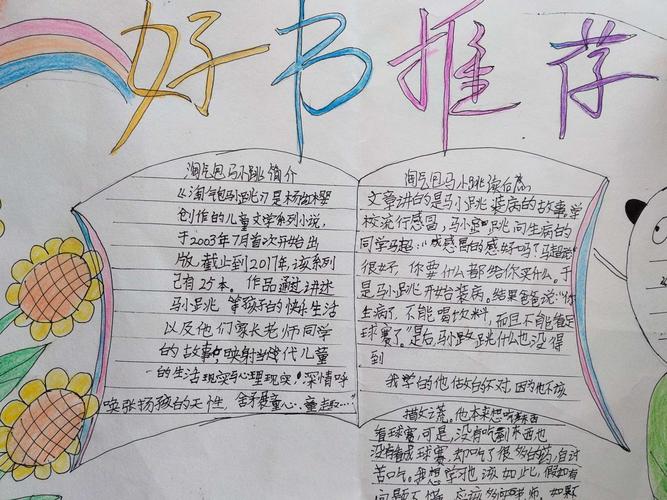 好书推荐
淘气包马小跳简介
《淘气包马小跳》是杨红樱
创作的儿童文学系列小说,
于2003年7月首次开始出
版,截止到2017年,该系列
己有25本。作品通过讲述
马小跳等孩子的快乐生活
以及他们家长老师同学
的故事,映射当代儿童
的生活现实与心理现实!深情呼
唤张扬孩的天性,舍不是童心、童趣……"
淘气包马小跳读后感
文章讲的是马小跳装病的故事,学
校流行感冒,马小跳问生病的
同学马超:"感冒的感好吗?马超说
很好,你要什么都给你买什么。于
是马小跳开始装病。结果爸爸说:"你
生病了,不能喝饮料,而且不能看足
球赛了"最后,马小跳什么也没得
到
我学的他做的不对,因为他不该
撒谎。他本来想吃东西
看球赛,可是,没有吃到东西也
没有看成球赛,却吃了很多的药,自讨
苦吃。我想学习也该如此,假如有
问题不懂,应该